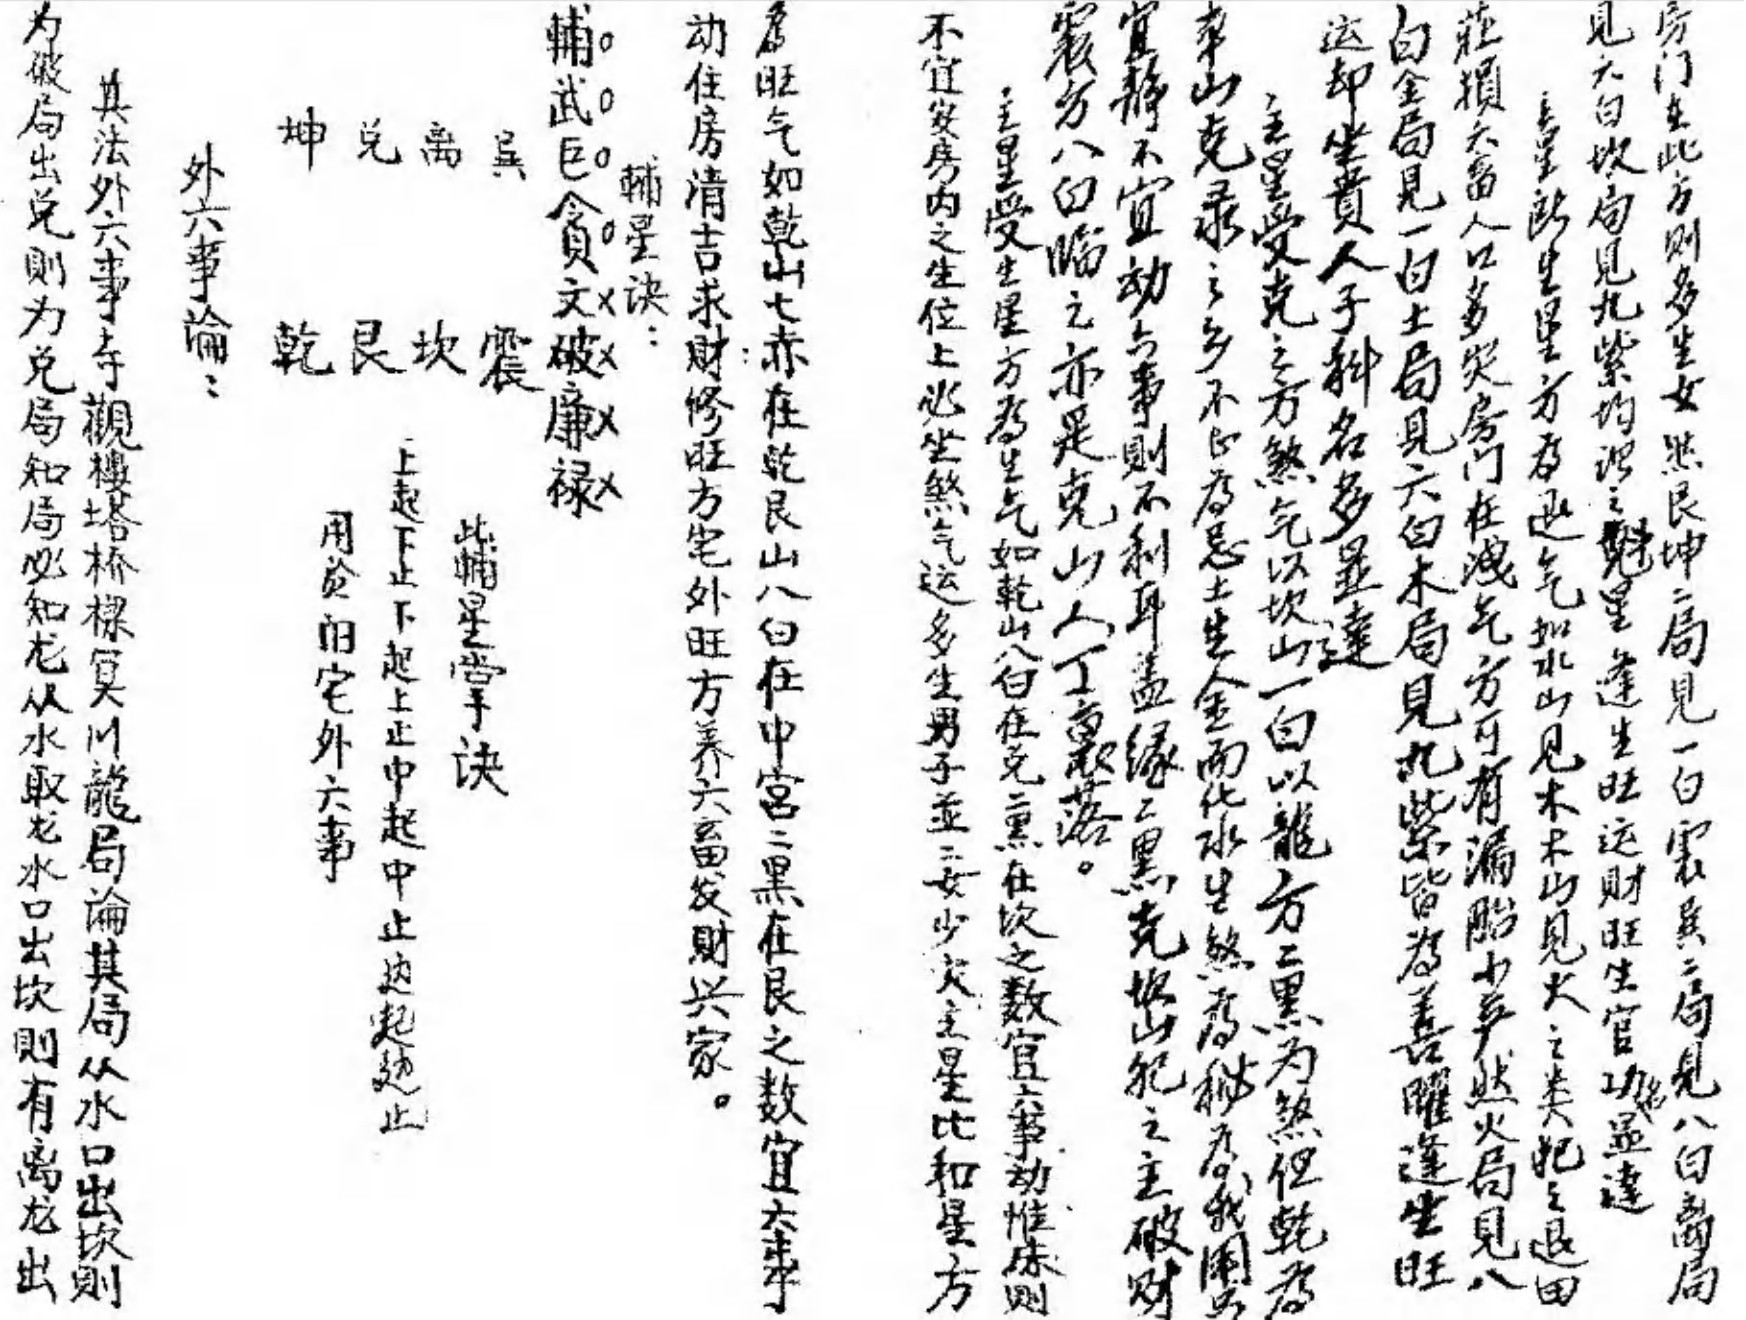 房门在此方则多生女然艮坤二局見一白震巽二局見八白离局
見六白坎局見九紫均谓之魁星逢生旺运财旺生官功名显達
主星所生星方为退气如水山見木木山見火之类犯之退田
莊損六畜人口多灾房门在洩气方可有漏胎小产然火局見八
白金局見一白土局見六白木局見九紫皆为善曜逢生旺
运却坐貴人子科名多显達
主星受克之方煞气以坎山一白以龍方二黑为煞但乾为
宜静不宜动六事則不利耳盖缘二黑克坎山犯之主破财
震方八白臨之亦是克山人丁衰落。
主星受生星方为生气如乾山八白在兑二黑在坎之数宜六事动惟床則
不宜安房内之生位上必坐煞气运多生男子並二女少灾主星比和星方
为旺气如乾山七赤在乾艮山八白在中宫二黑在艮之数宜六事
动住房清吉求财修旺方宅外旺方养六畜发财兴家。
輔星诀：
輔武巨贪文破廉禄
○○○○×××× 
巽离兑坤
震坎艮乾
此輔星掌诀
上起下止下起上止中起中止边起边止
用於阳宅外六事
外六事論：
其法外六事寺觀樓塔桥樑冥川龍局論其局从水口出坎則
为破局出兑則为兑局知局必知龙从水取龙水口出坎則有离龙出